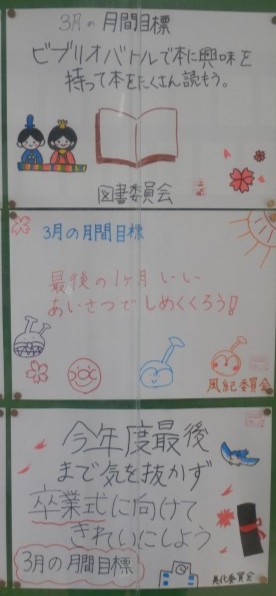 3月の月間目標
ビブリオバトルで本に興味を
持って本をたくさん読もう。
図書委員会
3月の月間目標
最後の1ヶ月いい
あいさつでしめくくろう!
風紀委員会
今年度最後
まで気を抜かず
卒業式に向けて
きれいにしよう
3月の月間目標
美化委員会